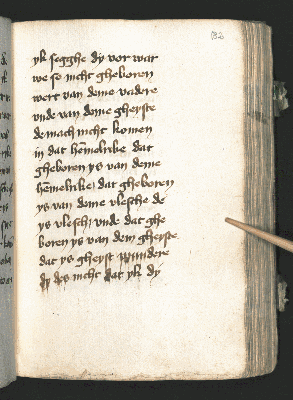 132
yk segghe dy vor war
we so nicht gheboren
wert van deme vadere
vnde van deme gheyste
de mach nicht komen
in dat hēmelrike dat
gheboren ys van deme
hēmelrike, dat gheboren
ys van deme vlesche de
ys vlesch, vnde dat ghe
boren ys van dem gheyste
dat ys gheyst
dy des nicht dat yk dy